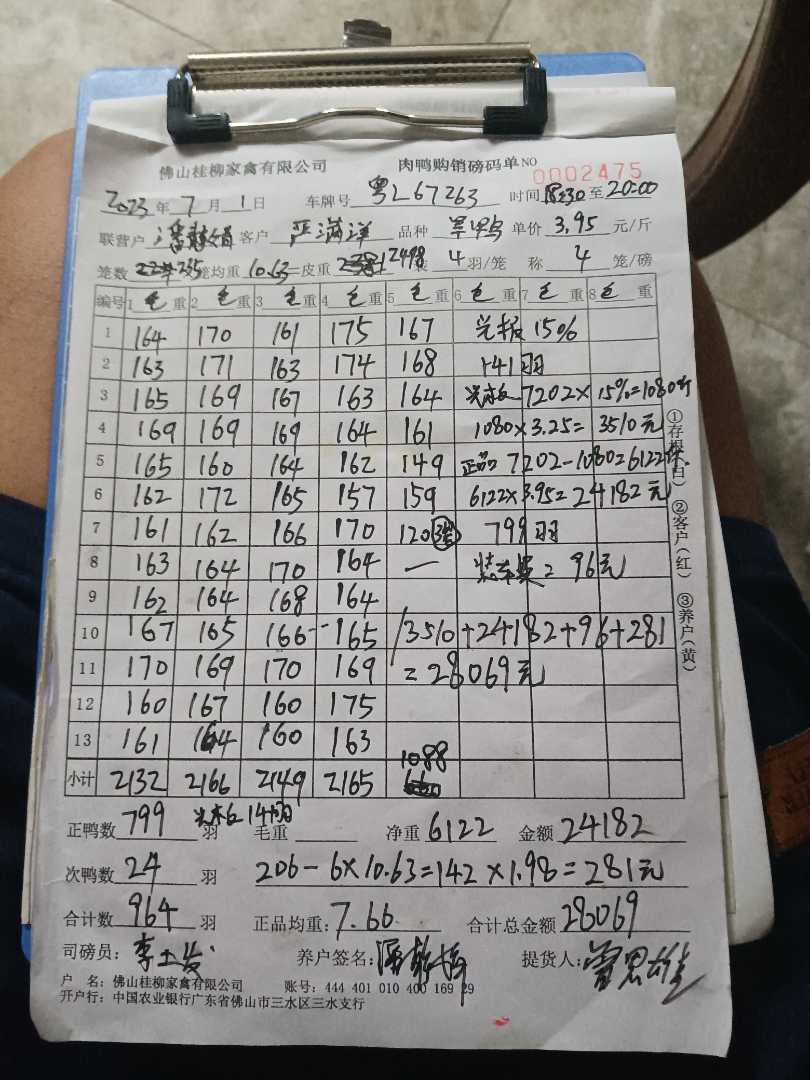 佛山桂柳家禽有限公司 肉鸭购销磅码单 NO 0002475
2023年7月1日 车牌号 粤L67263 时间 18:30至20:00
联营户 客户 严满洋 品种 单价 3.95 元/斤
笼数 235 笼均重 10.63 皮重 2498 4羽/笼 称 4 笼/磅
编号 1毛重 2毛重 3毛重 4毛重 5毛重 6毛重 7毛重 8毛重
1 164 170 161 175 167 光板15%
2 163 171 163 174 168 141羽
3 165 169 167 163 164 光板 7202×15%=1080斤
4 169 169 169 164 161 1080×3.25=3510元
5 165 160 164 162 149 正品 7202-1080=6122斤
6 162 172 165 157 159 6122×3.95=24182元
7 161 162 166 170 120 799羽
8 163 164 170 164 — 装车费=96元
9 162 164 168 164
10 167 165 166 165 3510+24182+96+281
11 170 169 170 169 =28069元
12 160 167 160 175
13 161 164 160 163
小计 2132 2166 2149 2165 1088
①存根(白) ②客户(红) ③养户(黄)
正鸭数 799 羽 光板141羽 毛重 净重 6122 金额 24182
次鸭数 24 羽 206-6×10.63=142×1.98=281元
合计数 964 羽 正品均重:7.66 合计总金额 28069
司磅员: 养户签名: 提货人:曾思雄
户 名:佛山桂柳家禽有限公司 账号:444 401 010 400 169 29
开户行:中国农业银行广东省佛山市三水区三水支行